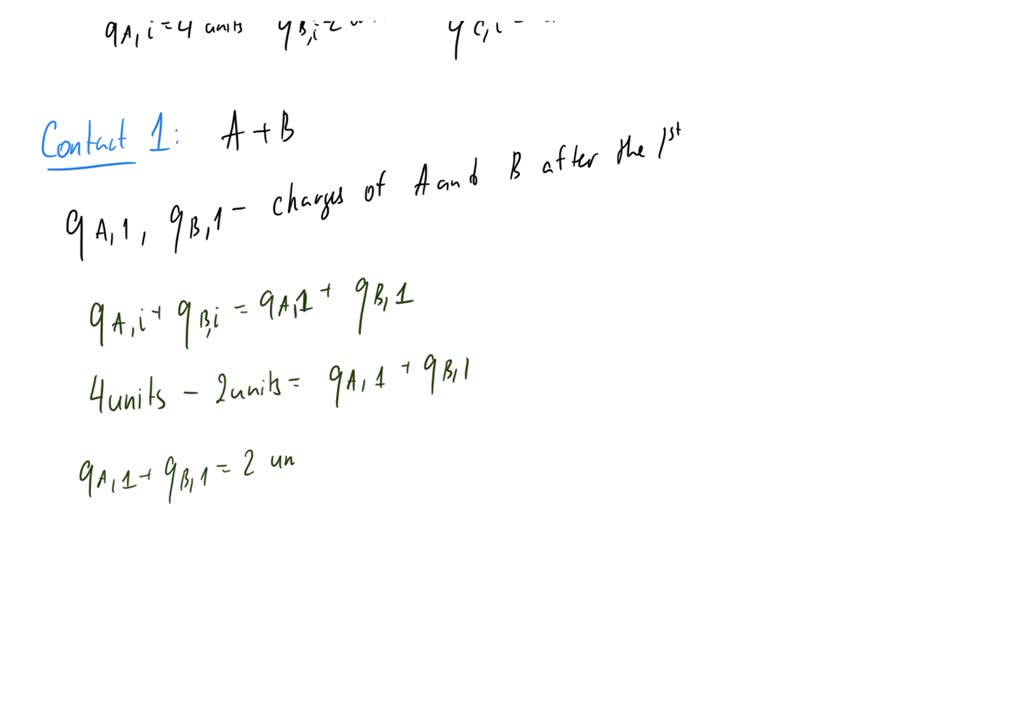 qA,i=4 units
Contact 1: A+B
qA,1, qB,1 - charges of A and B after the 1st
qA,i + qB,i = qA,1 + qB,1
4units - 2units = qA,1 + qB,1
qA,1 + qB,1 = 2 un